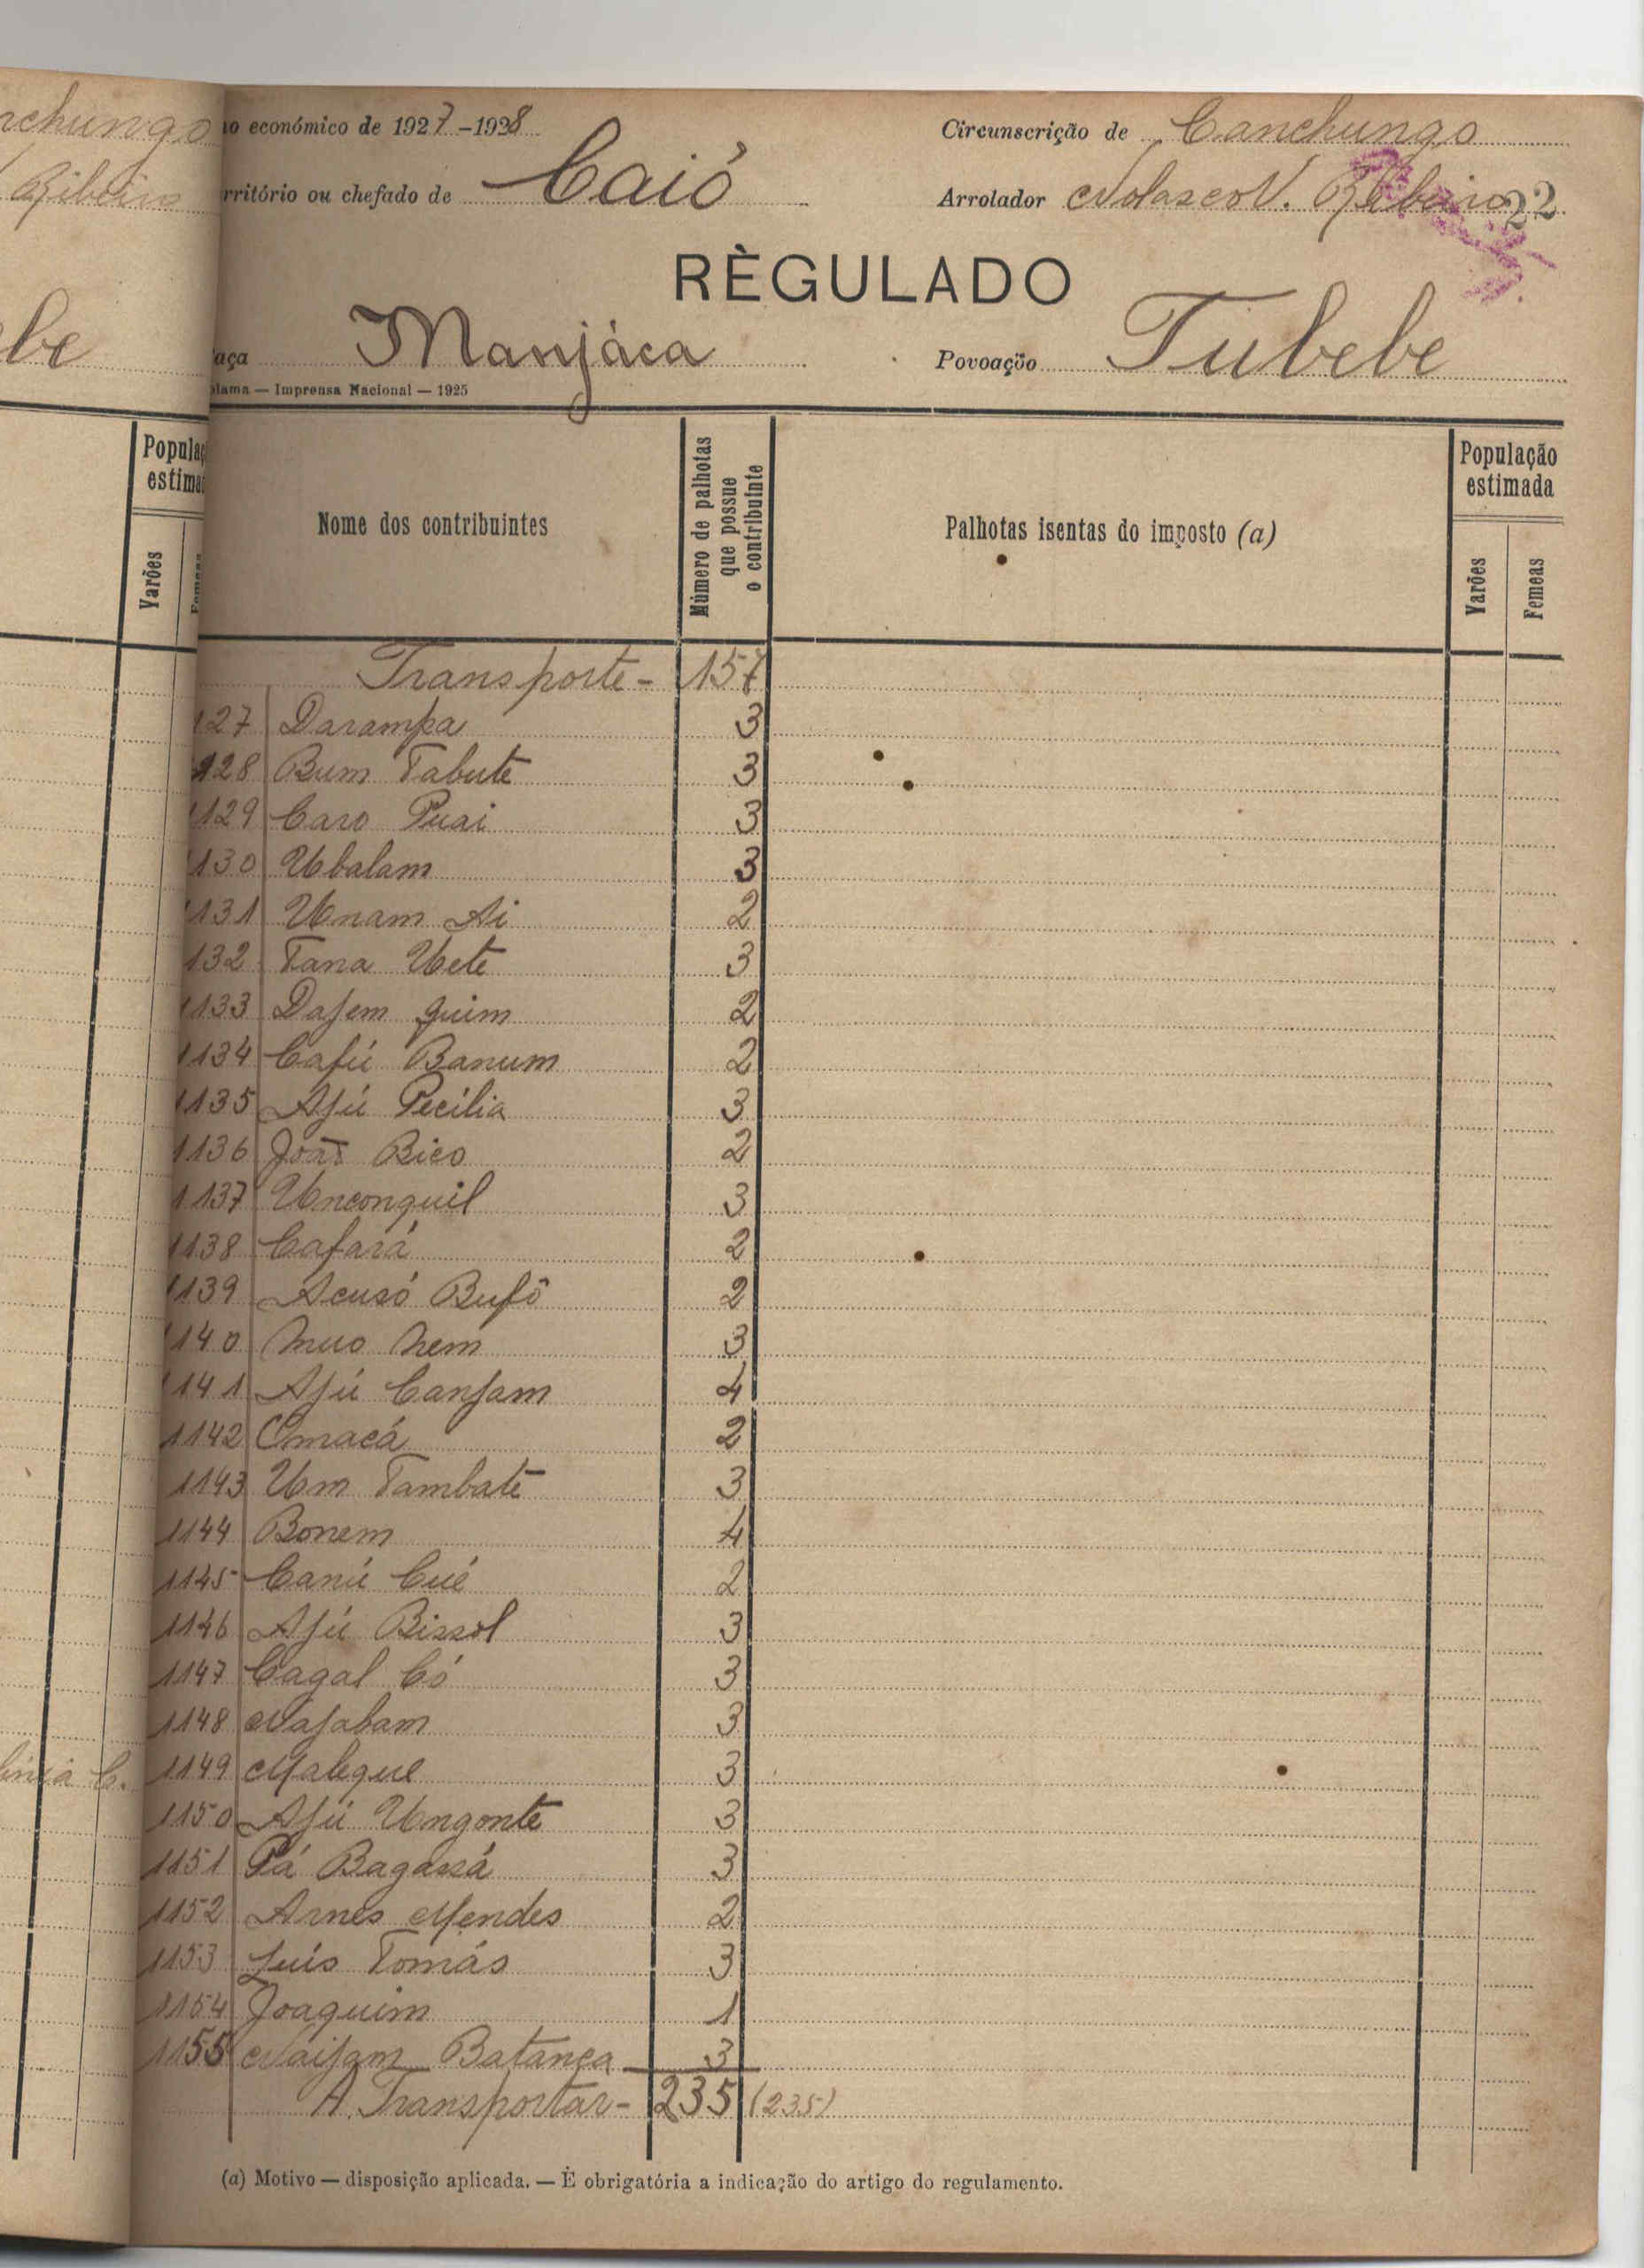 nchungo
Ribeiro
be
Populaç
estima
Varões
Femeas
linia C.
no económico de 1927-1928
Circunscrição de Canchungo
rritório ou chefado de Caió
Arrolador Nolasco V. Ribeiro 22
RÈGULADO
aça Manjáca
Povoação Tubebe
olama — Imprensa Nacional — 1925
Nome dos contribuintes
Número de palhotas
que possue
o contribuinte
Palhotas isentas do imposto (a)
População
estimada
Varões
Femeas
Transporte - 157
127 Darampa 3
128 Bum Tabute 3
1129 Caro Puai 3
1130 Ubalam 3
1131 Unam Ai 2
132 Tana Uete 3
1133 Dajem Quim 2
1134 Cafú Banum 2
1135 Ajú Pecilia 3
1136 João Bico 2
1137 Unconquil 3
1138 Cafará 2
1139 Acusó Bufô 2
1140 Nuo Nem 3
1141 Ajú Canjam 4
1142 Omacá 2
1143 Um Tambate 3
1144 Bonem 4
1145 Canú Cué 2
1146 Ajú Bissol 3
1147 Cagal Có 3
1148 Najabam 3
1149 Maleque 3
1150 Ajú Ungonte 3
1151 Pá Bagassá 3
1152 Arnes Mendes 2
1153 Luís Tomás 3
1154 Joaquim 1
1155 Naijam Batança 3
A Transportar - 235 (235)
(a) Motivo — disposição aplicada. — É obrigatória a indicação do artigo do regulamento.